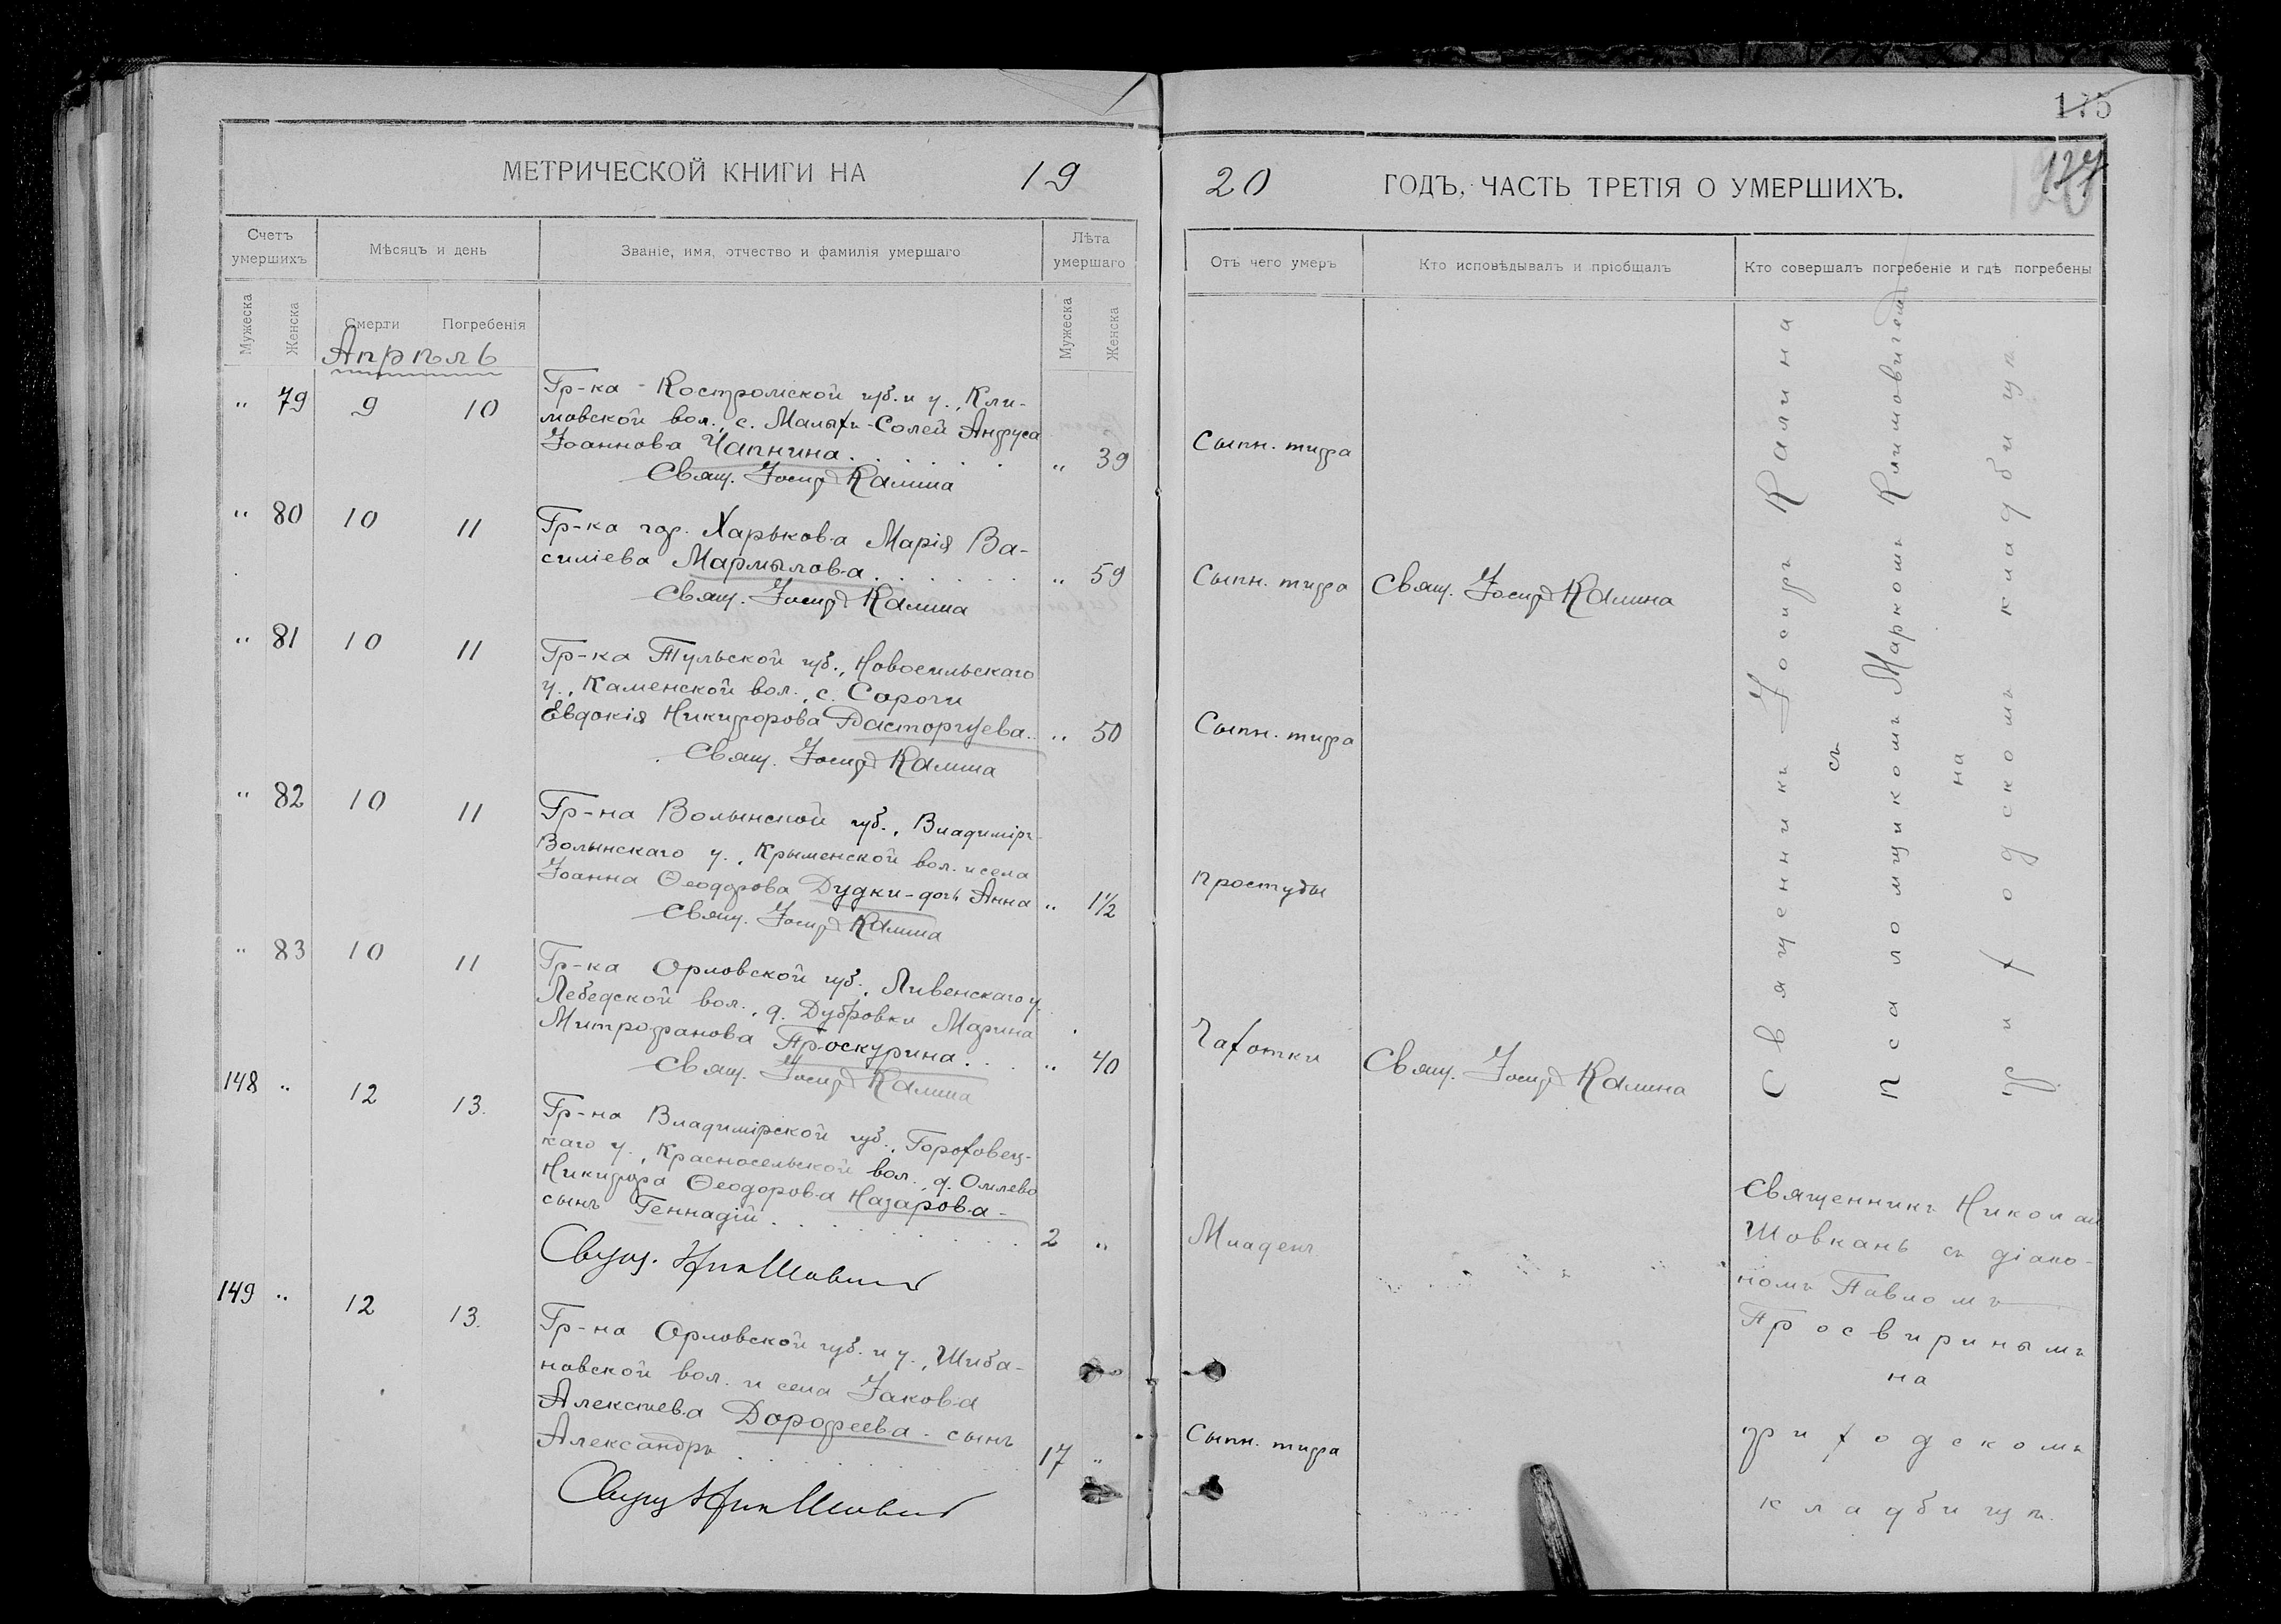 175
127
МЕТРИЧЕСКОЙ КНИГИ НА 19
20 ГОДЪ, ЧАСТЬ ТРЕТІЯ О УМЕРШИХЪ.
Счетъ умершихъ
Мѣсяцъ и день
Званіе, имя, отчество и фамилія умершаго
Лѣта умершаго
Отъ чего умеръ
Кто исповѣдывалъ и пріобщалъ
Кто совершалъ погребеніе и гдѣ погребены
Мужеска
Женска
Смерти
Погребенія
Мужеска
Женска
Апрѣль
" 79 9 10 Гр-ка - Костромской губ. и у., Кли-
мовской вол., с. Малыхъ-Солей Анфуса
Іоаннова Чапнина. " 39 Сыпн. тифа
Свящ. Іосифъ Калина
" 80 10 11 Гр-ка гор. Харькова Марія Ва-
силіева Мармылова. " 59 Сыпн. тифа Свящ. Іосифъ Калина
Свящ. Іосифъ Калина
" 81 10 11 Гр-ка Тульской губ., Новосильскаго
у., Каменской вол., с. Сорочи
Евдокія Никифорова Расторгуева. " 50 Сыпн. тифа
Свящ. Іосифъ Калина
" 82 10 11 Гр-на Волынской губ., Владимірг-
Волынскаго у., Крыменской вол. и села
Іоанна Ѳеодорова Дудки - дочь Анна " 1½ Простуды
Свящ. Іосифъ Калина
" 83 10 11 Гр-ка Орловской губ., Ливенскаго у.
Лебедской вол., д. Дубровки Марина
Митрофанова Проскурина. " 40 Чахотки Свящ. Іосифъ Калина
Свящ. Іосифъ Калина
Священникъ Іосифъ Калина
съ
Псаломщикомъ Маркомъ Климовичемъ
на
приходскомъ кладбищѣ
148 " 12 13. Гр-на Владимірской губ., Гороховец-
каго у., Красносельской вол., д. Омлево
Никифора Ѳеодорова Назарова -
сынъ Геннадій. 2 " Младенч
Свящ. Ник Шовкань
Священникъ Николай
Шовкань съ діако-
номъ Павломъ
Просвиринымъ
на
приходскомъ
кладбищѣ.
149 " 12 13. Гр-на Орловской губ. и у., Шиба-
новской вол. и села Іакова
Алексѣева Дорофеева - сынъ
Александръ. 17 " Сыпн. тифа
Свящ Ник Шовкань